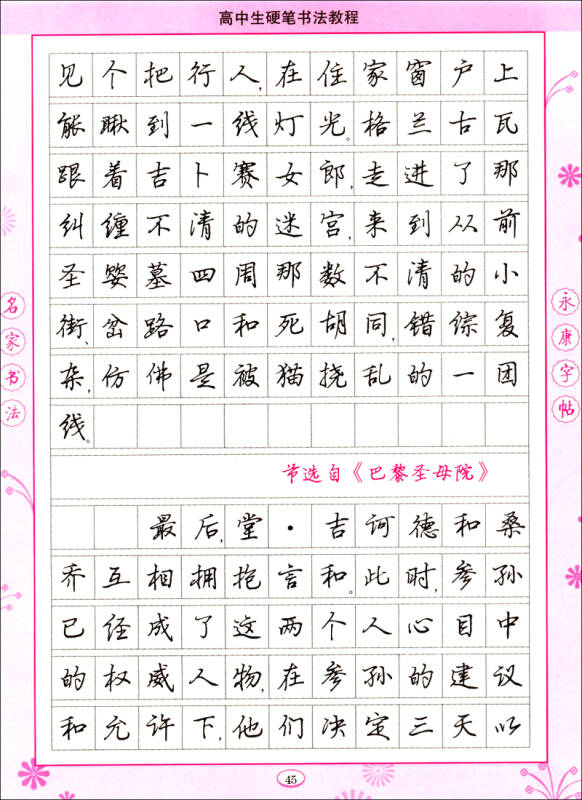 高中生硬笔书法教程
见个把行人,在住家窗户上
能瞅到一线灯光。格兰古瓦
跟着吉卜赛女郎,走进了那
纠缠不清的迷宫,来到从前
圣婴墓四周那数不清的小
街、岔路口和死胡同,错综复
杂,仿佛是被猫挠乱的一团
线。
节选自《巴黎圣母院》
最后,堂·吉诃德和桑
乔互相拥抱言和。此时,参孙
已经成了这两个人心目中
的权威人物,在参孙的建议
和允许下,他们决定三天以
名家书法
永康字帖
45